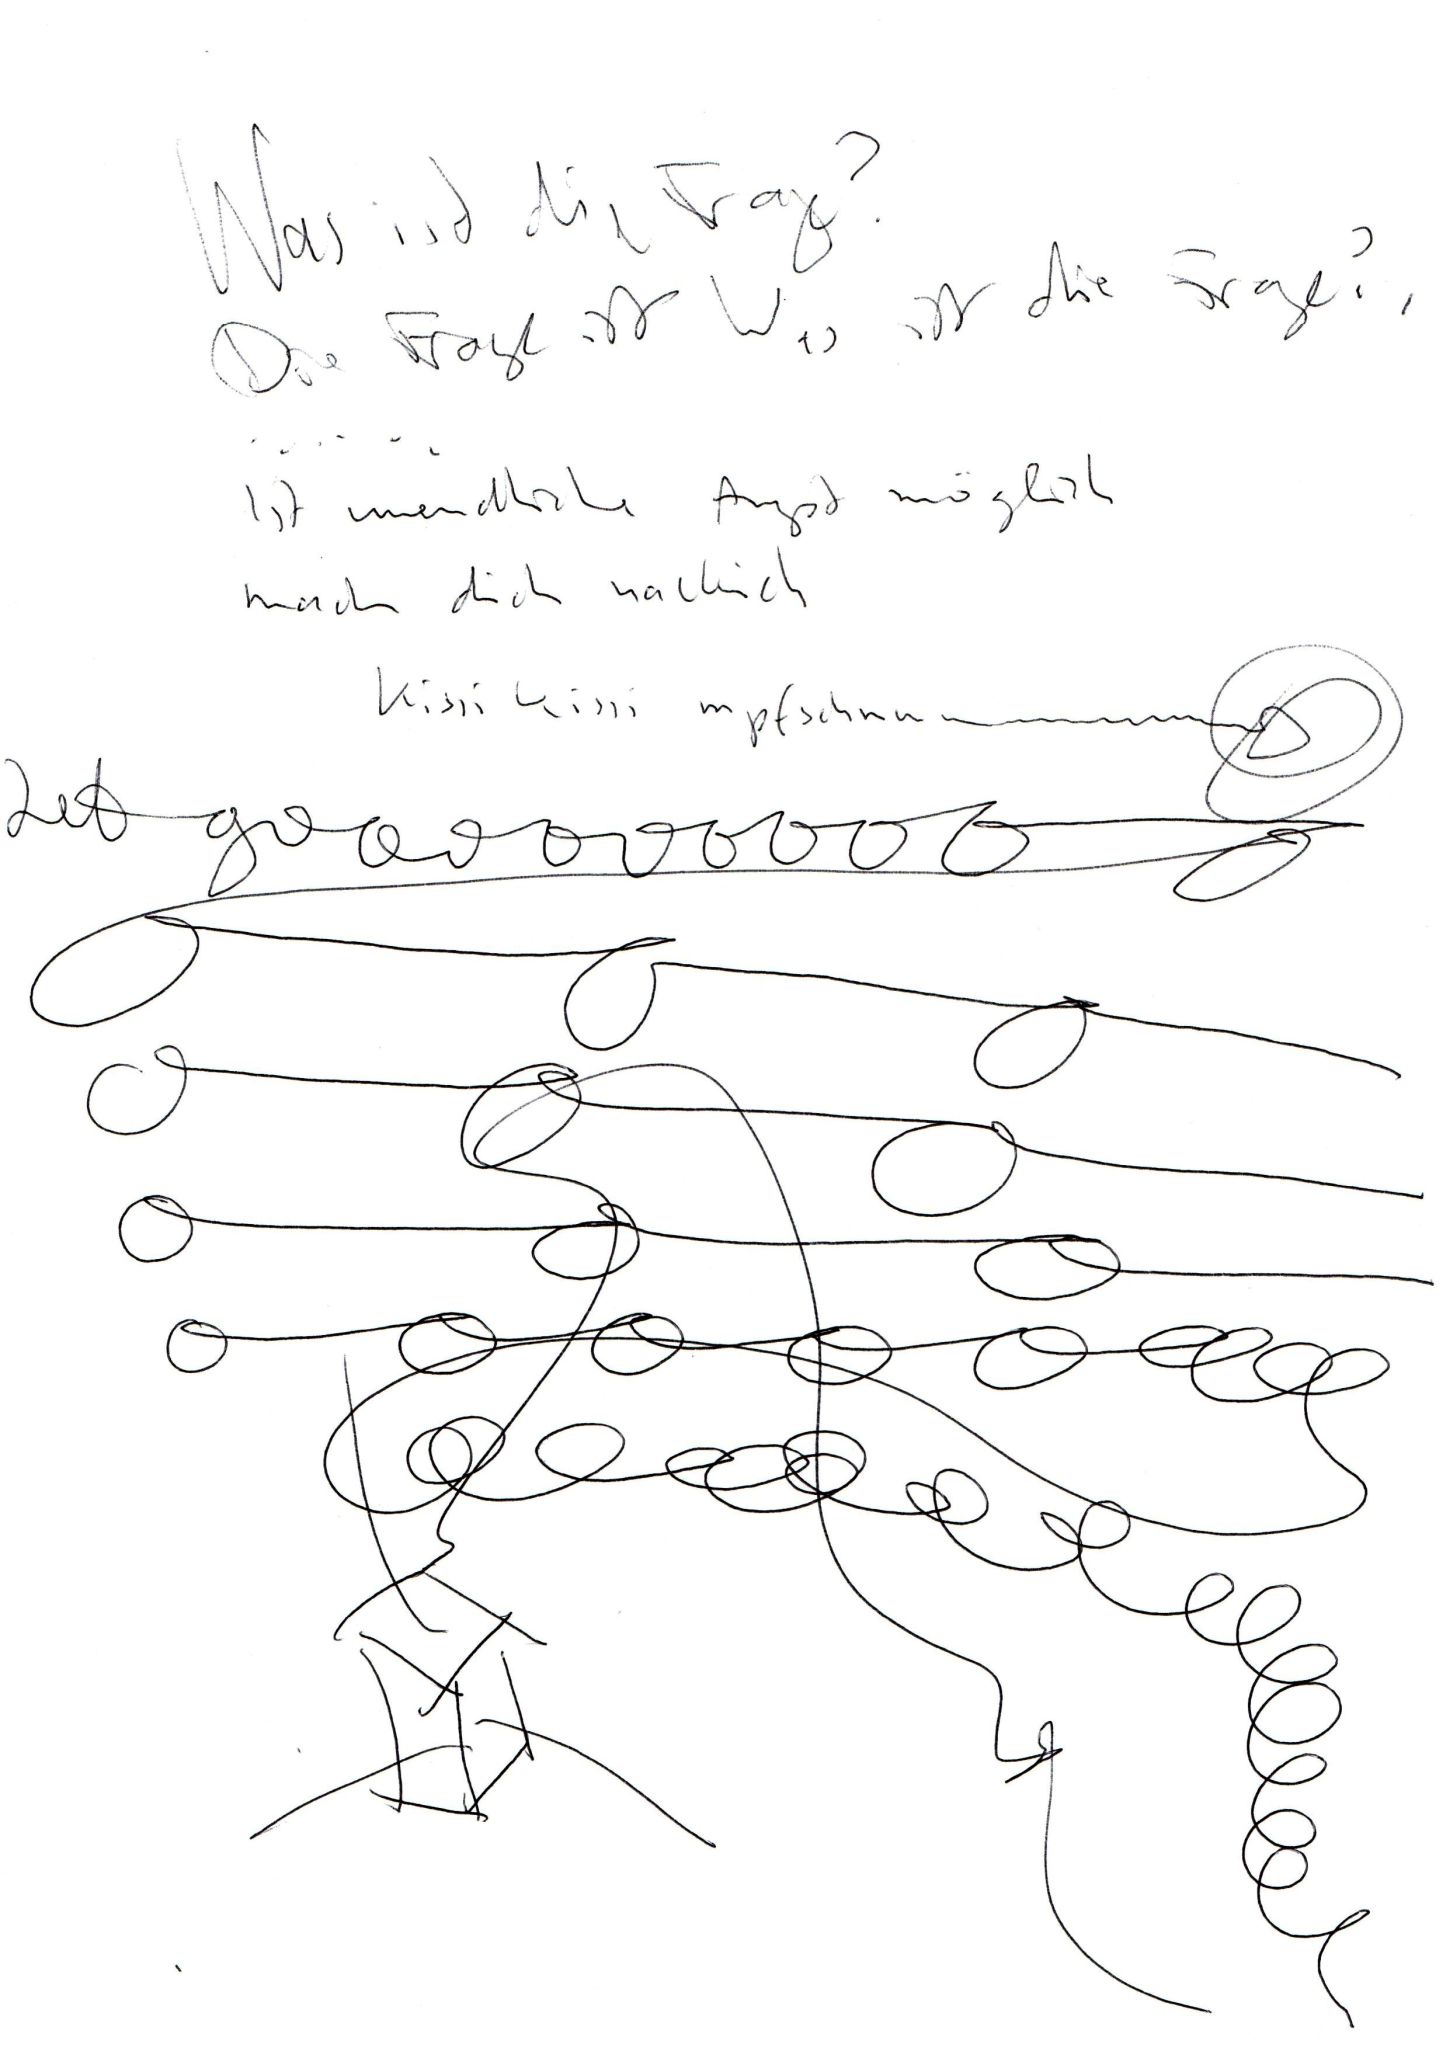 Was ist die Frage?
Die Frage ist Was ist die Frage?,
Ist unendliche Angst möglich
mach dich nackich
Kissi Kissi mpfschnnn
Let goooooooooo